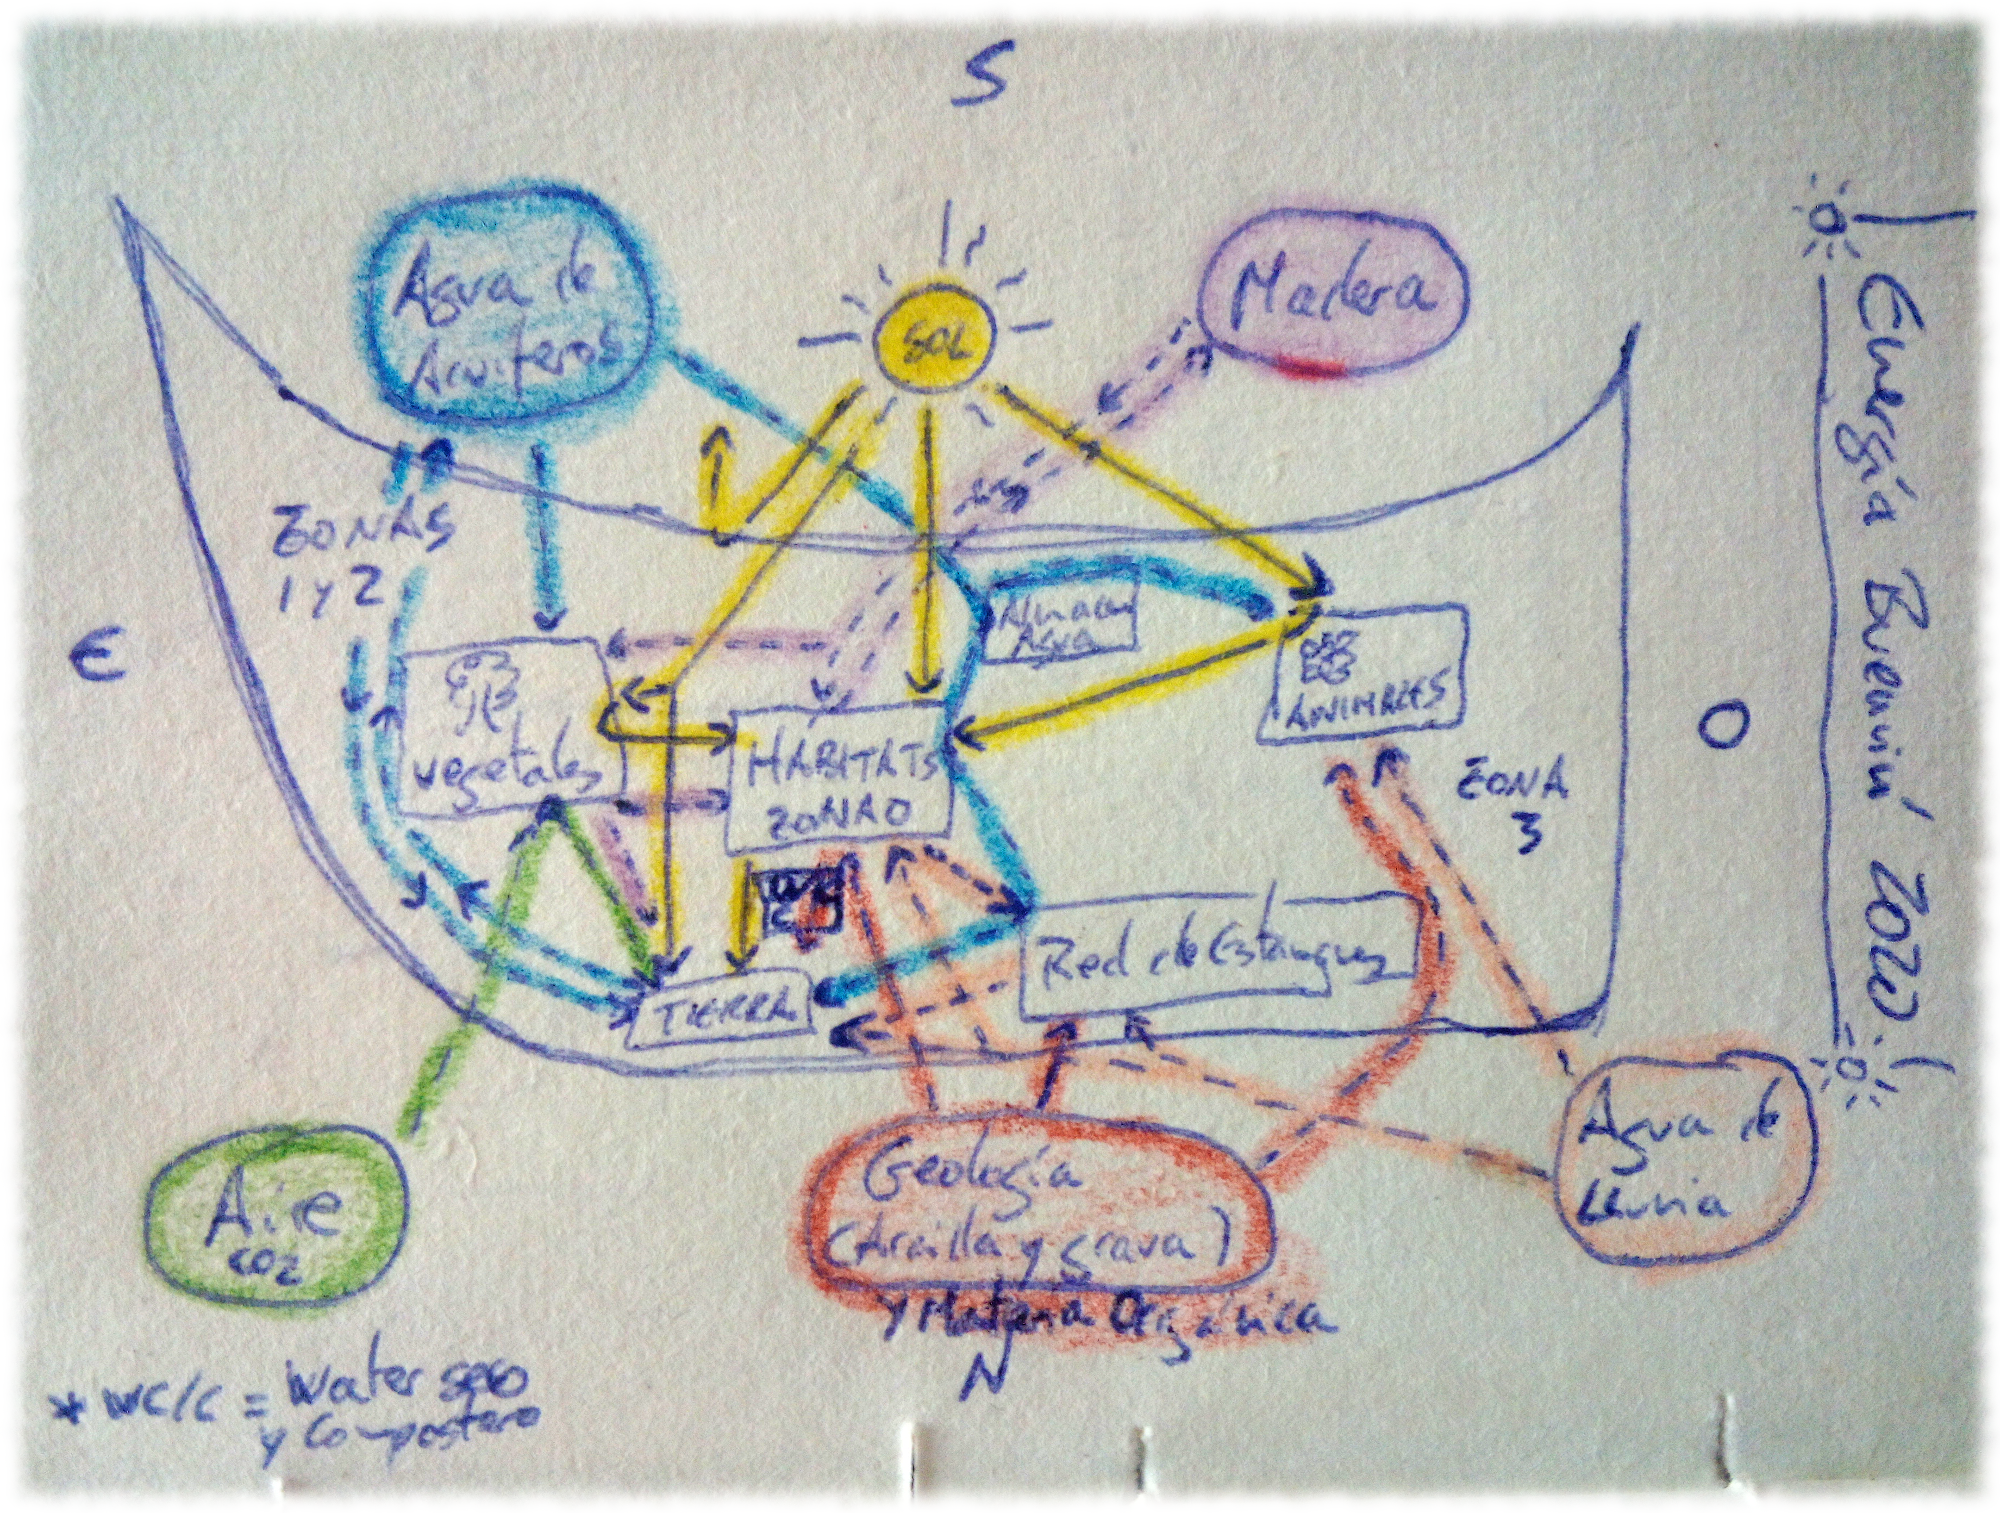 S
Agua de
Acuíferos
SOL
Madera
ZONAS
1 y 2
Agua
E
vegetales
ANIMALES
HÁBITATS
ZONA 0
ZONA
3
O
Red de Estanques
TIERRA
Aire
CO2
Geología
(Arcilla y grava)
y Materia Orgánica
N
Agua de
Lluvia
* WC/C = Water seco
y Compostera
Energía
2022